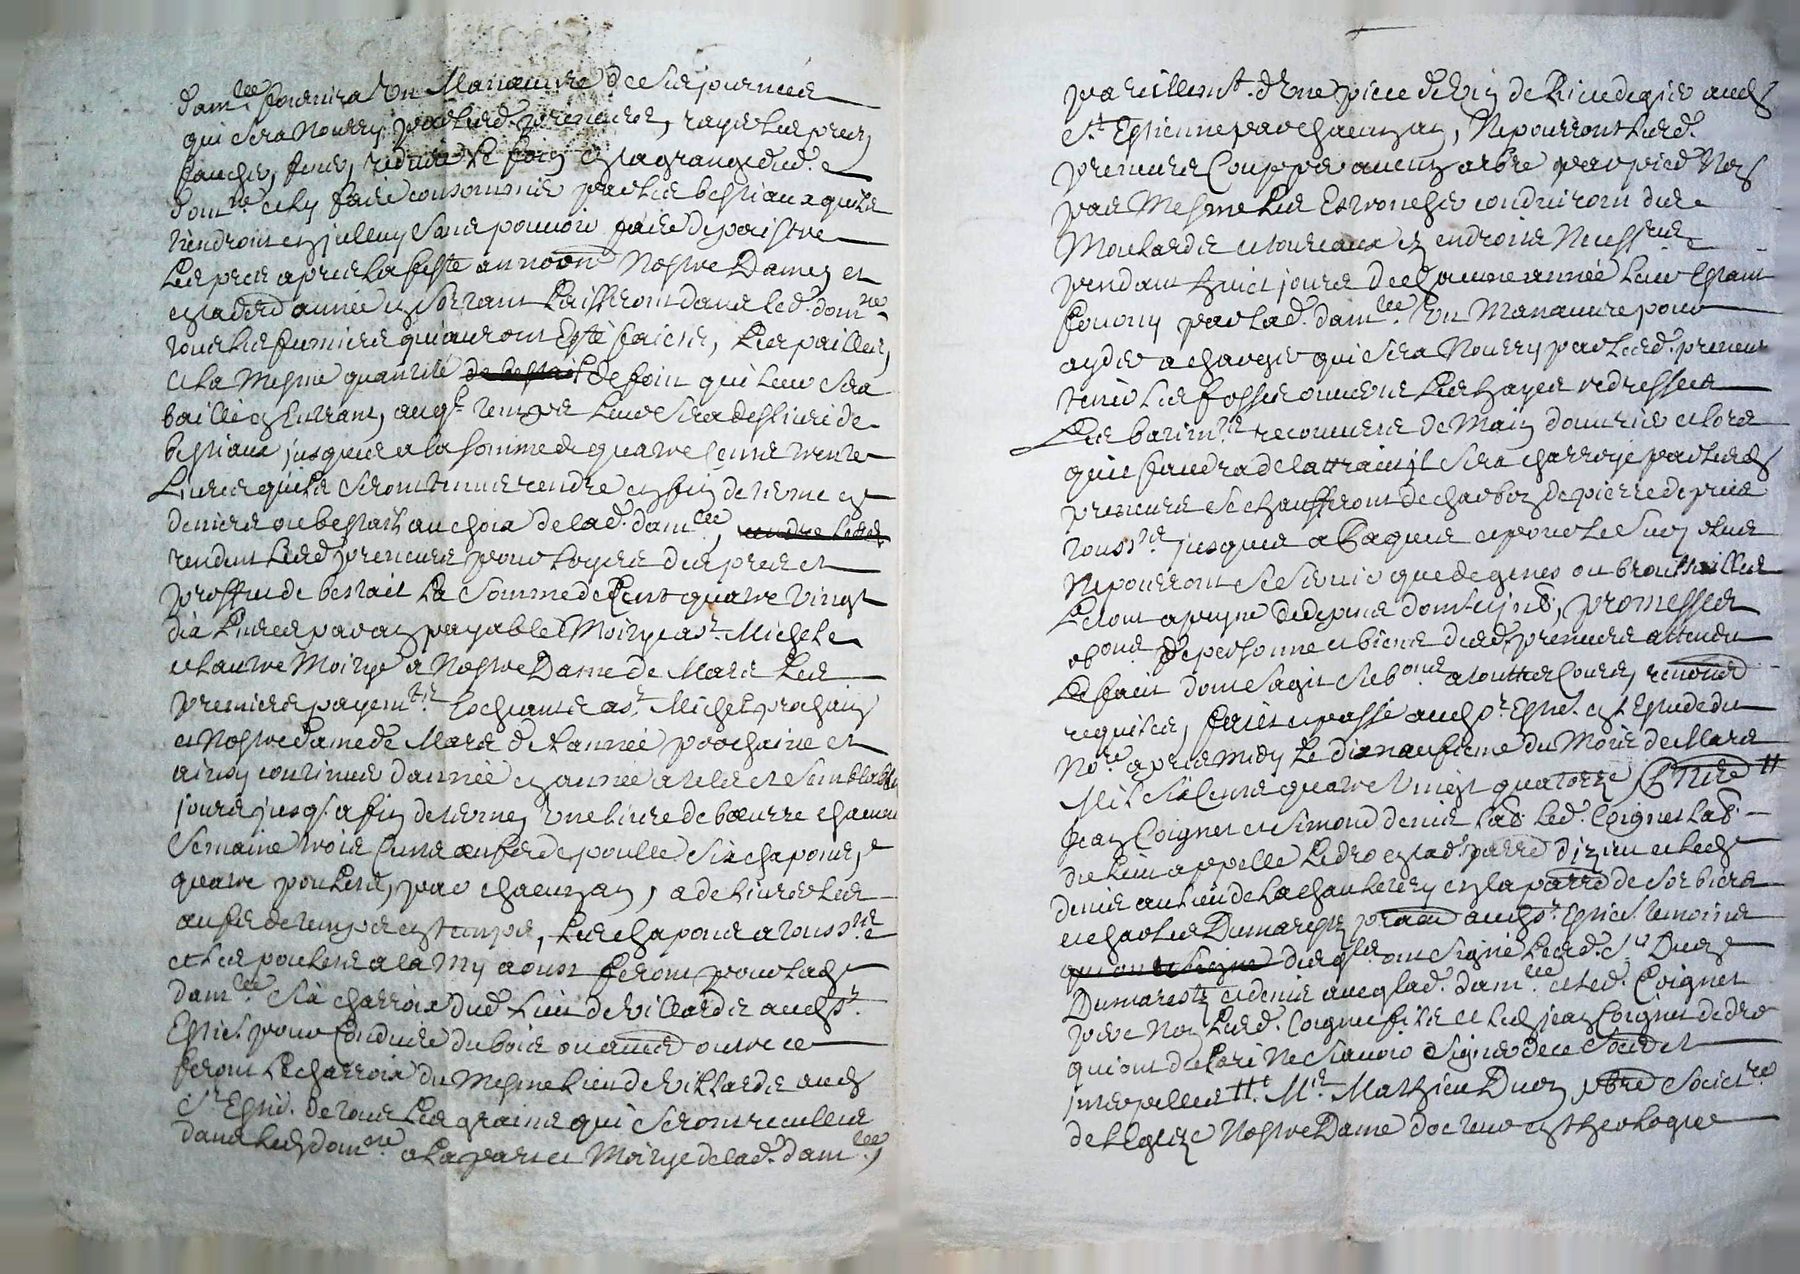 dam.lle fournira un Manœuvre de six journées
qui sera nourry par lesd. preneurs, rayer les prez,
faucher, fener, reduire le foin en la grange dud.
dom.ne et ly faire consommer par les bestiaux quils
tiendront en jcelluy sans pouvoir faire depaistre
les prez apres la feste annoon.n Nostre Dame, et
en lad. annee en sortant laisseront dans led. dom.ne
tous les fumiers qui auront esté faicts, les pailles,
et la mesme quantité de bestail de foin qui leur sera
baillé en entrant, auq.l temps leur sera deslivré de
bestiaux jusques a la somme de quatre cents trente
livres quils seront tenus rendre en fin de terme en
deniers ou bestail au choix de lad. dam.lle, rendre lesd.
rendant lesd. preneurs pour loyers des prez et
proffits de bestail la somme de cent quatre vingt
dix livres par an payable Moitye a s.t Michel
et lautre Moitye a Nostre Dame de Mars les
premiers payem.ts escheants a s.t Michel prochain
et Nostre Dame de Mars de lannée prochaine et
ainsy continuer dannée en année a tels et semblables
jours jusq. a fin de terme, une livre de bœurre chacune
semaine trois cens œufs de poulle six chapons,
quatre poulets, par chacun an, a delivrer les
œufs de temps en temps, les chapons a touss.ts
et les poulets a la my aoust feront pour lad.
dam.lle six charrois dud. lieu de Villardie aud. S.t
Esti. pour conduire du bois ou autres outre ce
feront le charroix du mesme lieu de Villardie aud.
S.t Esti. de tous les grains qui seront recullis
dans led. dom.ne a la part et Moitye de lad. dam.lle,
pareillem.t dune piece de vin de Rivedegier aud.
S.t Estienne par chacun an, Ne pourront lesd.
preneurs coupper aucun arbre par pied Nes
pas Mesme les estronche conduiront des
pendant huict jours de chacune année leur estant
fourny par lad. dam.lle un Manœuvre pour
ayder a charger qui sera nourry par lesd. preneurs
tenir les fosses ouverts les hayes redressees
les batim.ts recouverts de Main douvrier et lors
quil faudra de lattrait jl sera charroyé par lesd.
preneurs se chauffront de charbon de pierre depuis
touss.ts jusques a Paques et pour le surplus
Ne pourront se servir que de genes ou broussailles
le tout a peyne de depens dom. jnt., promesses
obon. de personne et biens desd. preneurs attendu
le faict dont sagit sub.ons a touttes cours, renon
requises, faict et passé aud. S.t Esti. en lestude du
no.re apres midy le dixneufieme du Mois de Mars
Mil six cents quatre vingt quatorze
Jean Coignet et Simond denis lab. led. Coignet lab.
du lieu appellé Ledro en lad. parre et led.
denis au lieu de la chauletery en la parre de Sorbiers
et charles Dumarestz aud. S.t Esti. temoins
qui ont signé desq.ls ont signé lesd. S.r Duon
Dumarestz et denis avec lad. dam.lle et led. Coignet
pere non lesd. Coignet fils et led. jean Coignet dedro
qui ont declaré Ne scavoir signer de ce
jnterpelles ++ M.re Mathieu Duon pbre societ.re
de lEglize Nostre Dame docteur en theologie